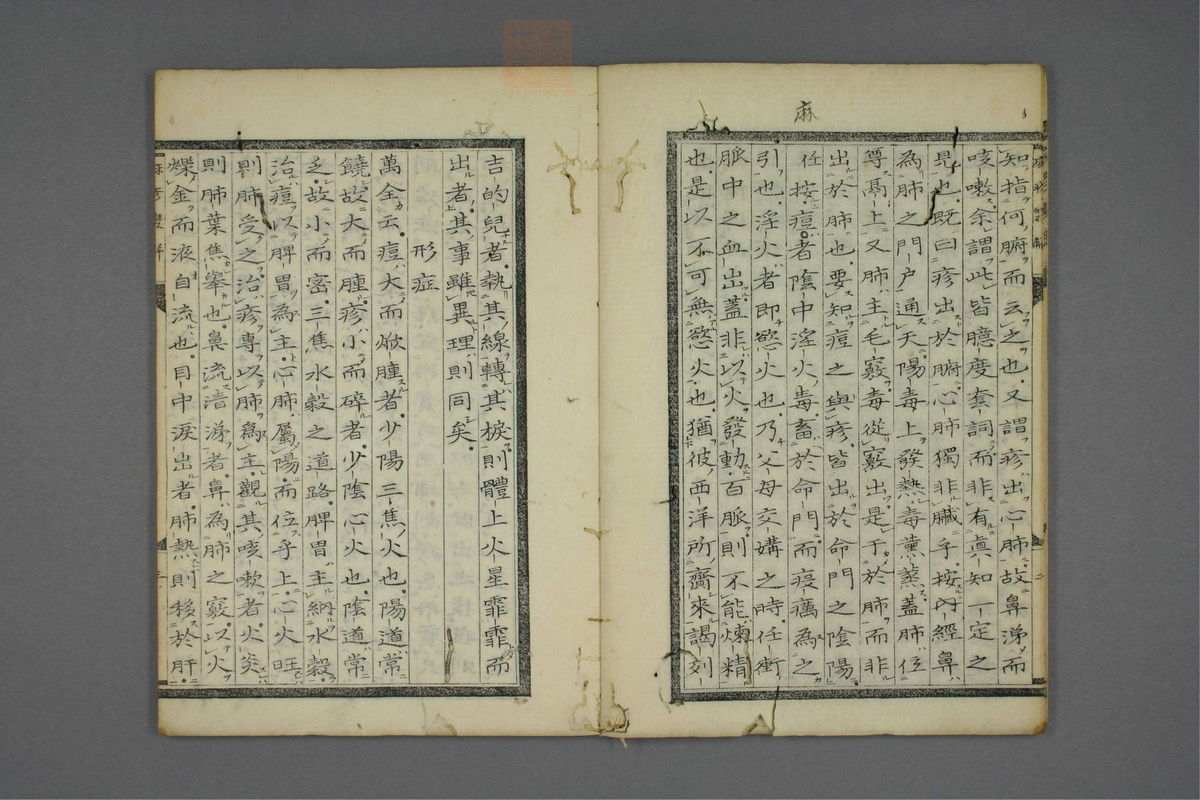 麻
知指何腑而云之也又謂疹出心肺故鼻涕而
咳嗽余謂此皆臆度套詞而非有眞知一定之
見也既曰疹出於腑心肺獨非臟乎按内經鼻
為肺之門戸通天陽毒上發熱毒薰蒸蓋肺位
尊高上又肺主毛竅毒從竅出是于於肺而非
出於肺也要知痘之與疹皆出於命門之陰陽
任按痘者陰中淫火毒畜於命門而疫癘為之
引也淫火者即慾火也乃父母交媾之時任衝
脈中之血出蓋非以火發動百脈則不能煉精
也是以不可無慾火也猶彼西洋所齎來謁刻
吉的兒者執其線轉其捩則體上火星霏霏而
出者其事雖異理則同矣
形症
萬金云痘大而焮腫者少陽三焦火也陽道常
饒故大而腫疹小而碎者少陰心火也陰道常
乏故小而密三焦水穀之道路脾胃主納水穀
治痘以脾胃為主心肺屬陽而位乎上心火旺
則肺受之治疹專以肺為主觀其咳嗽者火炎
則肺葉焦擧也鼻流清涕者鼻為肺之竅以火
爍金而液自流也目中淚出者肺熱則移於肝